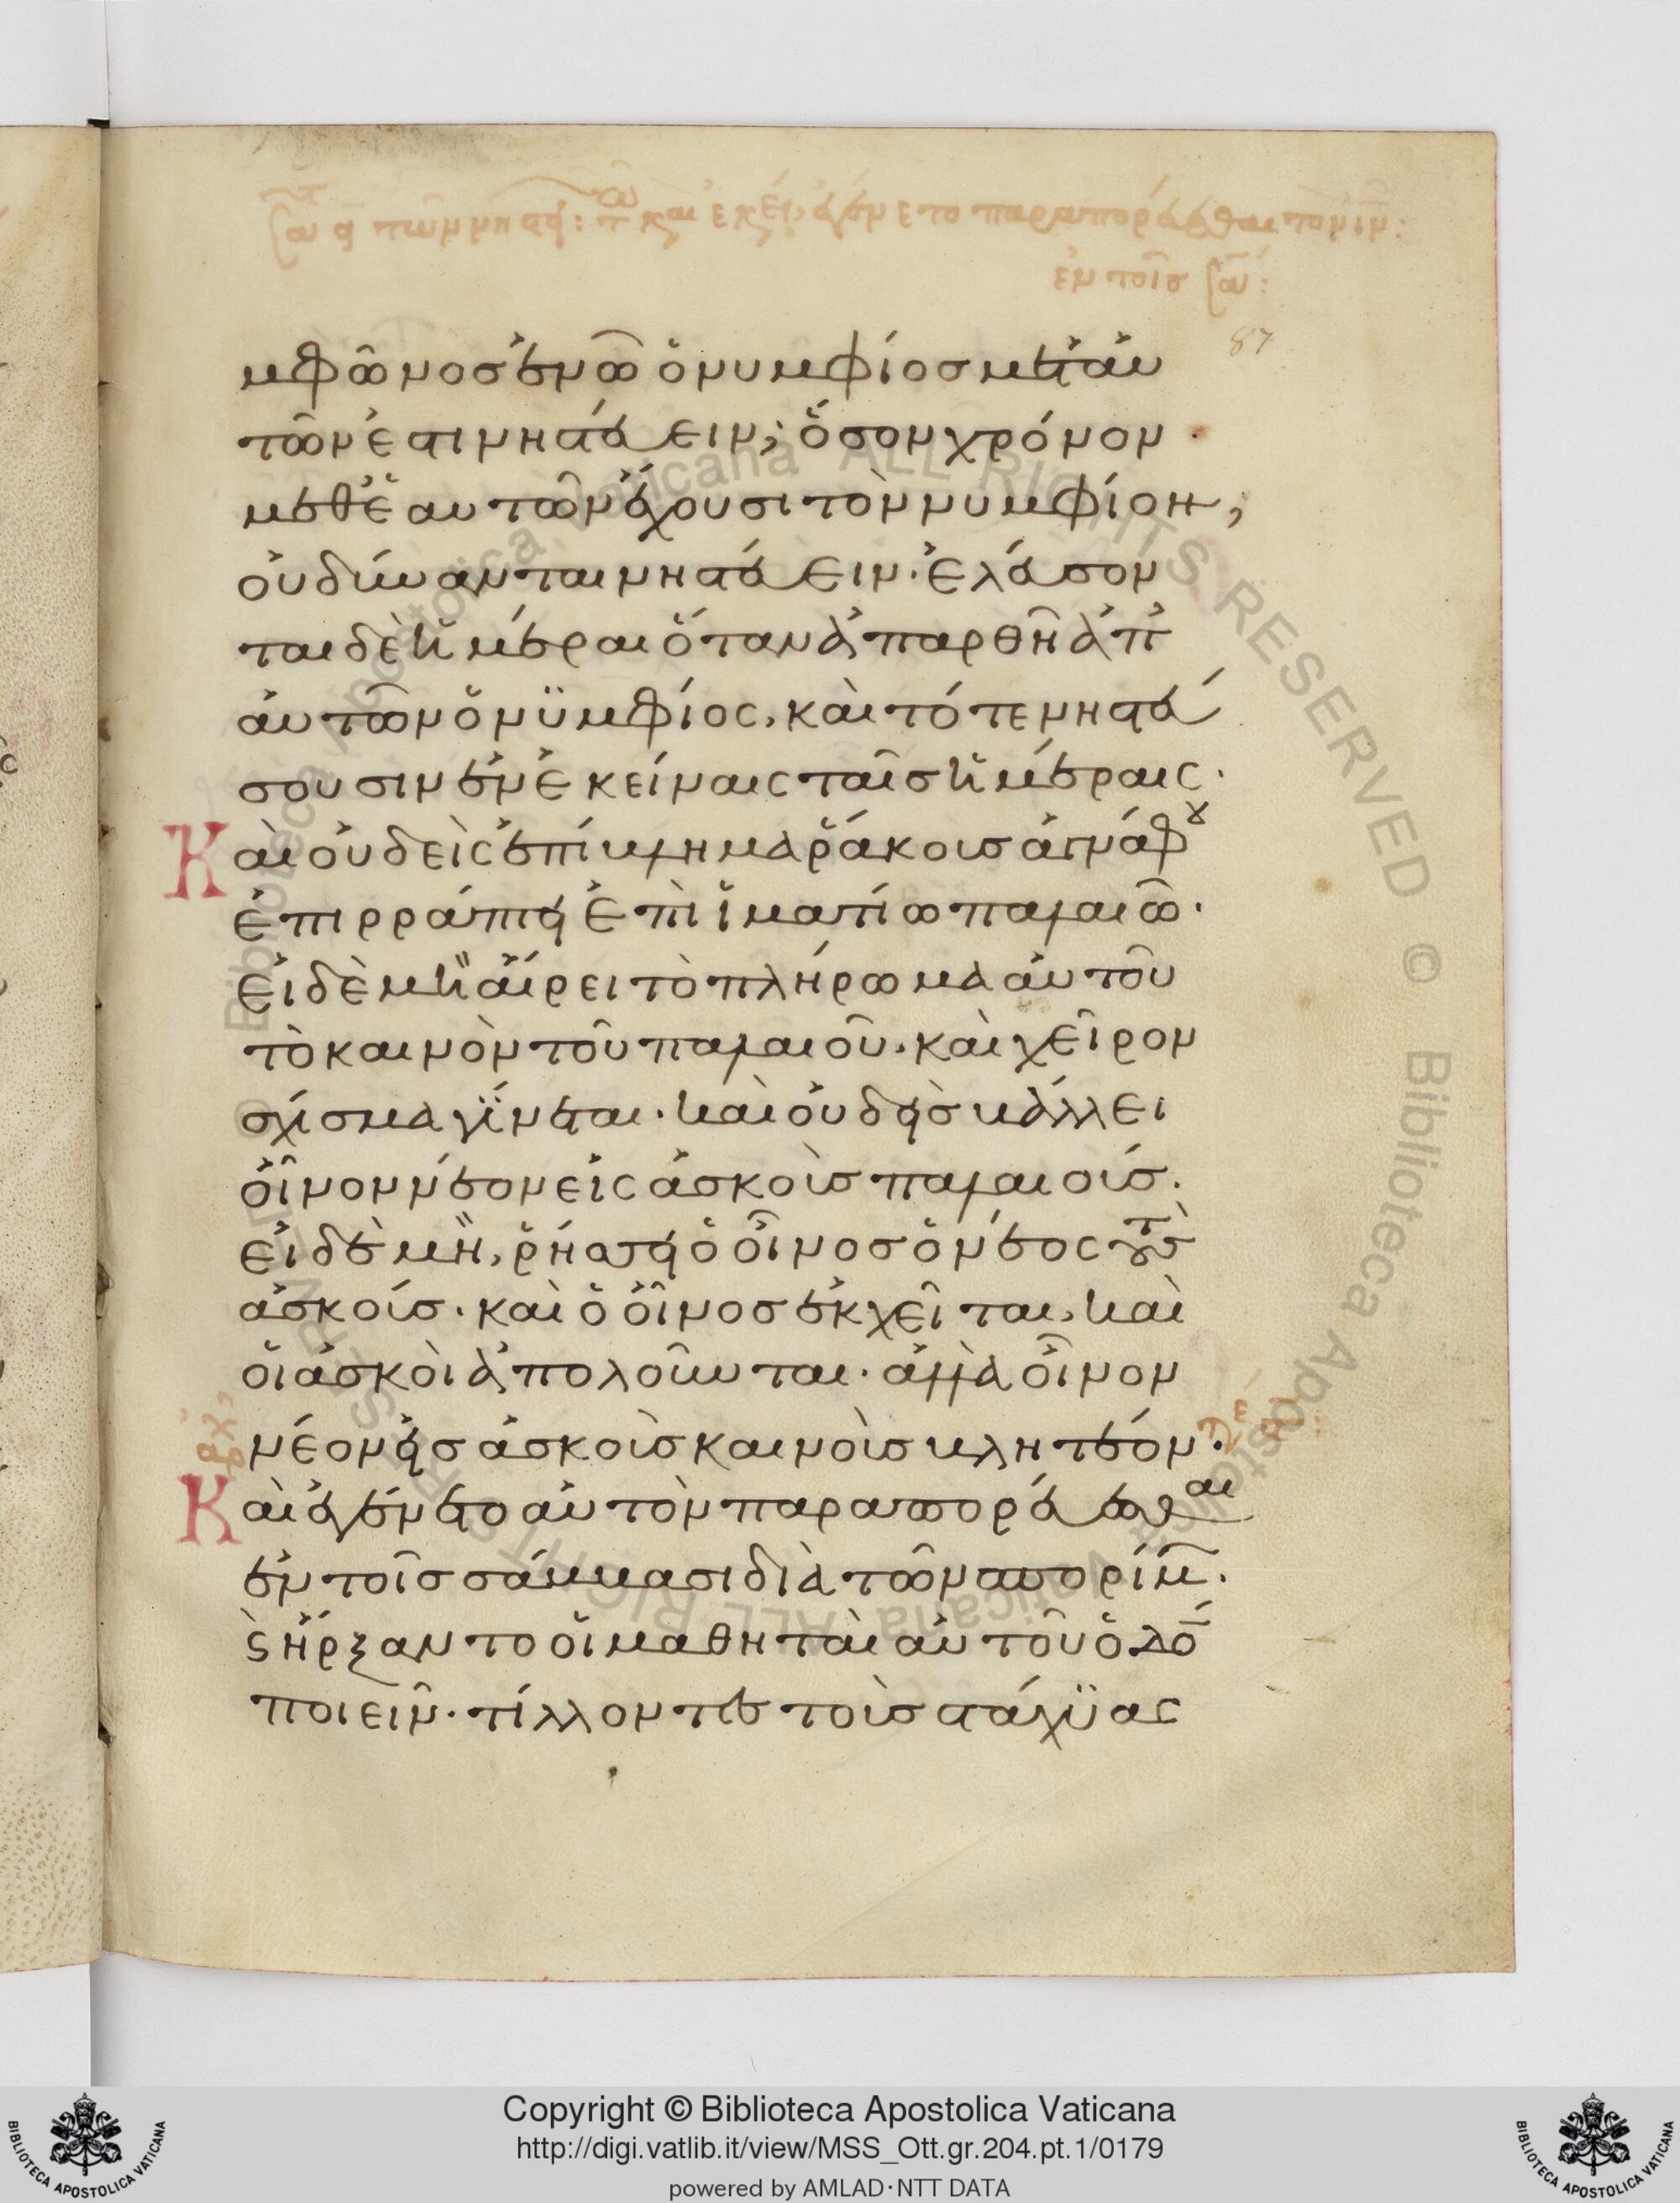 87
μφῶνος ἐν ᾧ ὁ νυμφίος μετ' αὐ
τῶν ἐστι νηστεύειν; ὅσον χρόνον
μεθ' ἑαυτῶν ἔχουσι τὸν νυμφίον,
οὐ δύνανται νηστεύειν· ἐλεύσον
ται δὲ ἡμέραι ὅταν ἀπαρθῆ ἀπ'
αὐτῶν ὁ νϋμφίος, καὶ τότε νηστεύ
σουσιν ἐν ἐκείναις ταῖς ἡμέραις.
Καὶ οὐδεὶς ἐπίβλημα ῥάκους ἀγνάφου
ἐπιρράπτει ἐπὶ ἱματίω παλαιῶ.
εἰ δὲ μὴ αἴρει τὸ πλήρωμα αὐτοῦ
τὸ καινὸν τοῦ παλαιοῦ. καὶ χεῖρον
σχίσμα γίνεται. καὶ οὐδεὶς βάλλει
οἶνον νέον εἰς ἀσκοὺς παλαιούς.
εἰ δὲ μὴ, ῥήσσει ὁ οἶνος ὁ νέος τοὺς
ἀσκούς. καὶ ὁ οἶνος ἐκχεῖται, καὶ
οἱ ἀσκοὶ ἀπολοῦνται. ἀλλὰ οἶνον
νέον εἰς ἀσκοὺς καινοὺς βλητέον.
Καὶ ἐγένετο αὐτὸν παραπορεύεσθαι
ἐν τοῖς σάββασι διὰ τῶν σπορίμων.
ϗ ἤρξαντο οἱ μαθηταὶ αὐτοῦ ὁδὸν
ποιεῖν. τίλλοντες τοὺς στάχϋας
Copyright © Biblioteca Apostolica Vaticana
http://digi.vatlib.it/view/MSS_Ott.gr.204.pt.1/0179
powered by AMLAD·NTT DATA
BIBLIOTECA APOSTOLICA VATICANA
BIBLIOTECA APOSTOLICA VATICANA